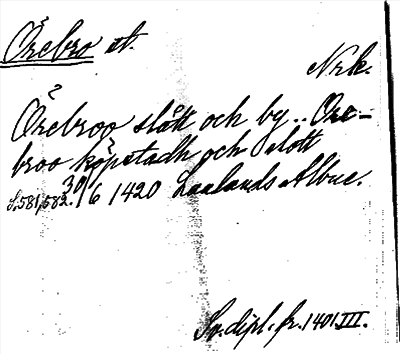 Örebro st.
Nrk.
Örebroo slått och by.. Öre-
broo köpstadh och slott
S. 581, 582. 30/6 1420 Laalands Albue.
Sv. dipl. fr. 1401. III.